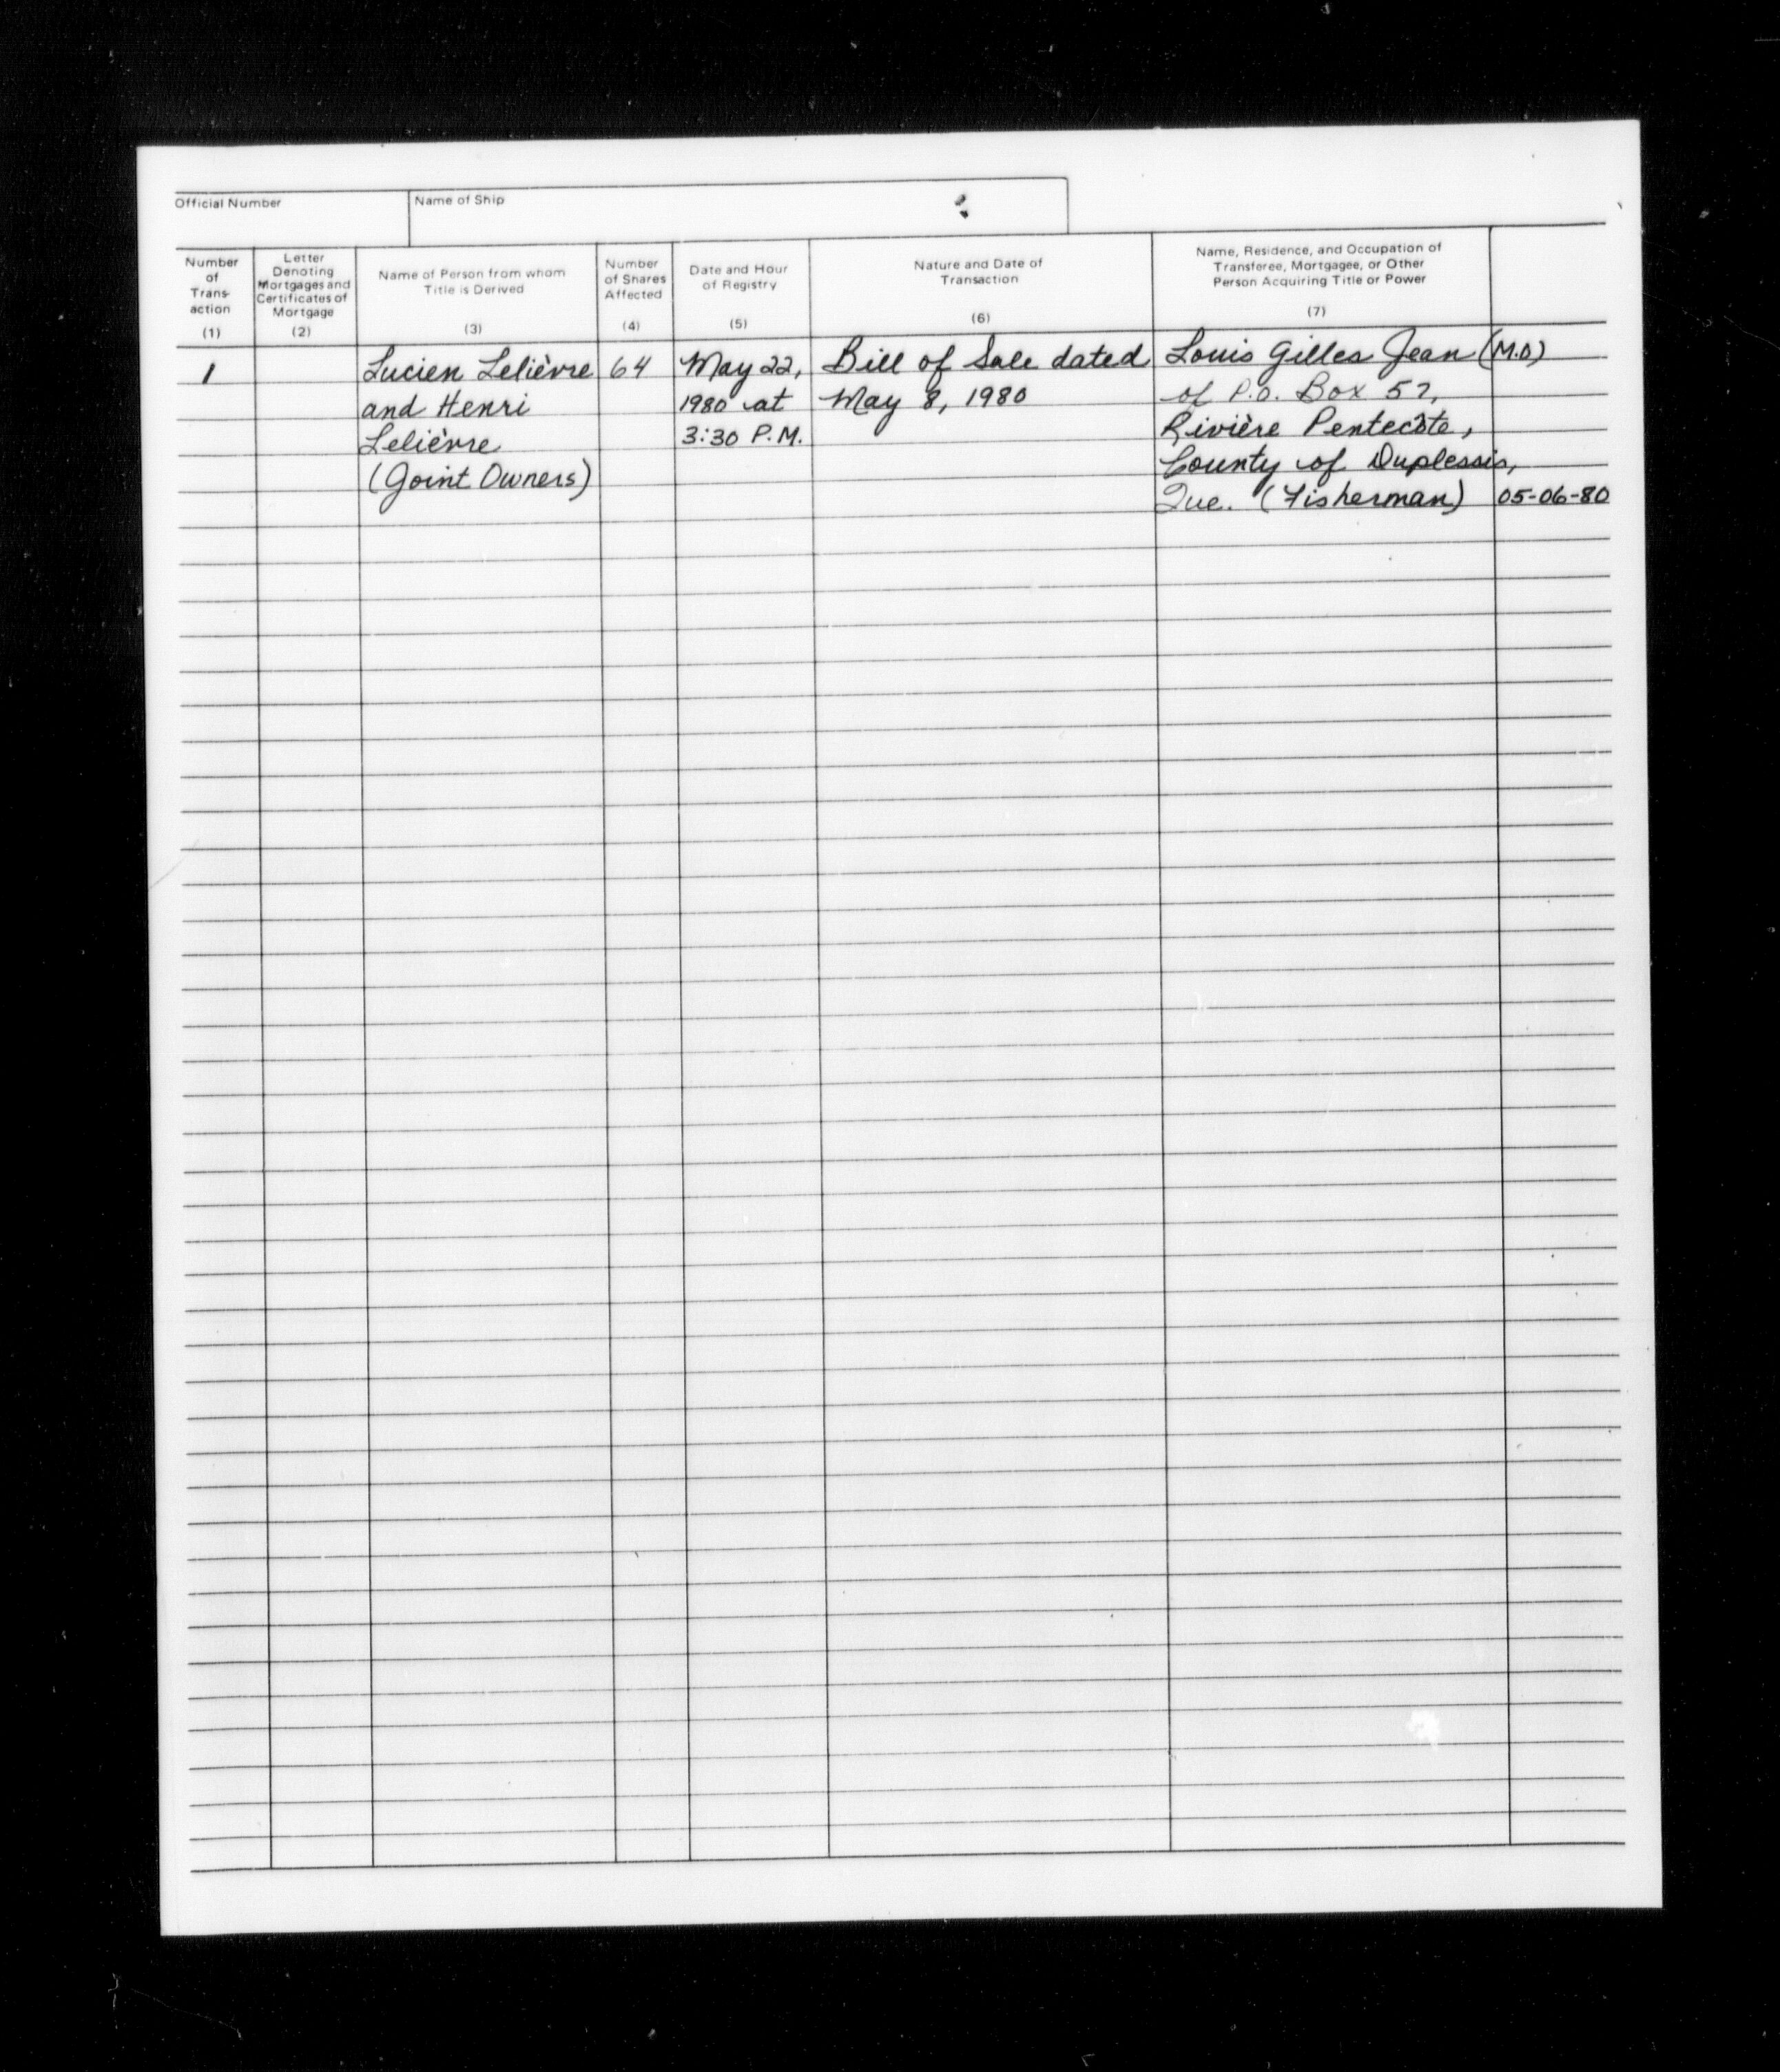 Official Number
Name of Ship
Number
of
Trans-
action
(1)
Letter
Denoting
Mortgages and
Certificates of
Mortgage
(2)
Name of Person from whom
Title is Derived
(3)
Number
of Shares
Affected
(4)
Date and Hour
of Registry
(5)
Nature and Date of
Transaction
(6)
Name, Residence, and Occupation of
Transferee, Mortgagee, or Other
Person Acquiring Title or Power
(7)
1
Lucien Lelièvre
and Henri
Lelièvre
(Joint Owners)
64
May 22,
1980 at
3:30 P.M.
Bill of Sale dated
May 8, 1980
Louis Gilles Jean (M.O)
of P.O. Box 57,
Rivière Pentecôte,
County of Duplessis,
Que. (Fisherman)
05-06-80